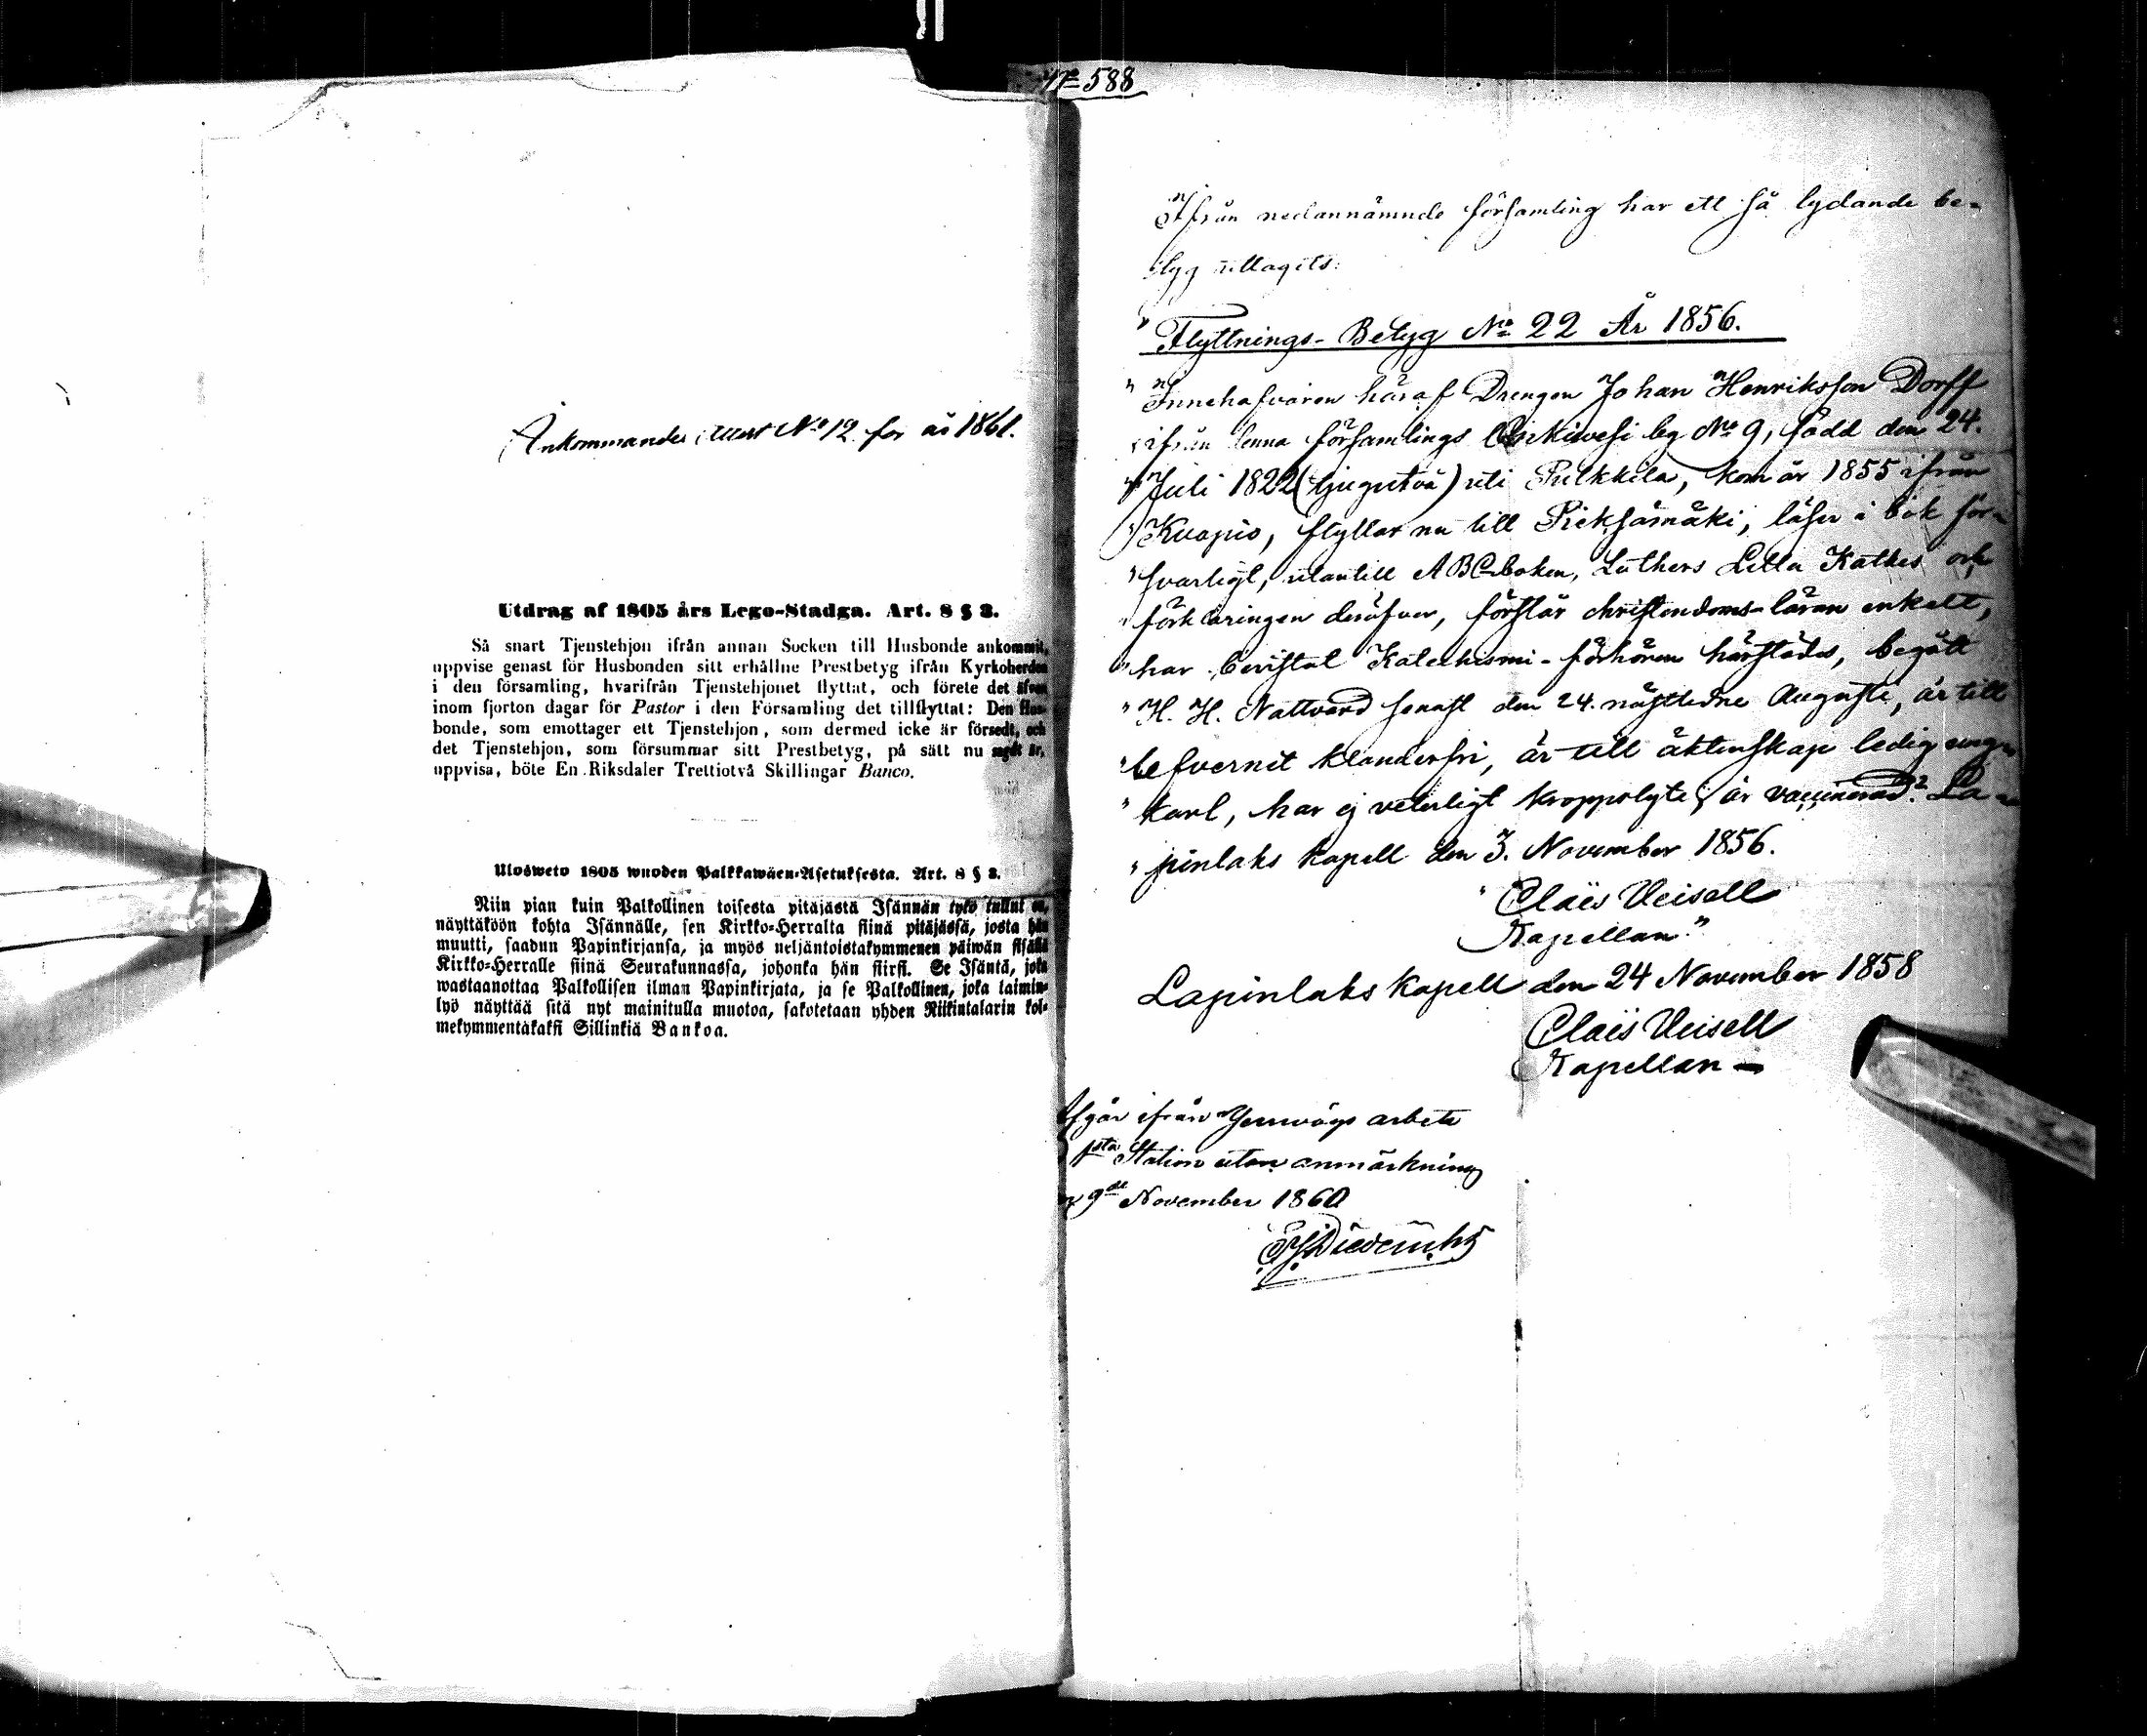 Ankommande attest No 12 för år 1861.
Utdrag af 1805 års Lego-Stadga. Art. 8 § 3.
Så snart Tjenstehjon ifrån annan Socken till Husbonde ankommit,
uppvise genast för Husbonden sitt erhållne Prestbetyg ifrån Kyrkoherden
i den församling, hvarifrån Tjenstehjonet flyttat, och förete det äfven
inom fjorton dagar för Pastor i den Församling det tillflyttat: Den Hus-
bonde, som emottager ett Tjenstehjon, som dermed icke är försedt, och
det Tjenstehjon, som försummar sitt Prestbetyg, på sätt nu sagdt är,
uppvisa, böte En Riksdaler Trettiotvå Skillingar Banco.
Ulosweto 1805 wuoden Palkkawäen-Asetuksesta. Art. 8 § 3.
Niin pian kuin Palkollinen toisesta pitäjästä Isännän tykö tullut on,
näyttäköön kohta Isännälle, sen Kirkko-Herralta siinä pitäjässä, josta hän
muutti, saadun Papinkirjansa, ja myös neljäntoistakymmenen päiwän sisällä
Kirkko-Herralle siinä Seurakunnassa, johonka hän siirsi. Se Isäntä, joka
wastaanottaa Palkollisen ilman Papinkirjata, ja se Palkollinen, joka laimin-
lyö näyttää sitä nyt mainitulla muotoa, sakotetaan yhden Riikintalarin kol-
mekymmentäkaksi Sillinkiä Bankoa.
No 588
Ifrån nedannämnde församling har ett så lydande be-
tyg uttagits:
" Flyttnings-Betyg No 22 År 1856.
" Innehafvaren häraf Drengen Johan Henriksson Dorff
" ifrån denna församlings by No 9, född den 24.
" Juli 1822 (tjugutvå) uti Pulkkila, kom år 1855 ifrån
" Kuopio, flyttar nu till Pieksämäki, läser i bok för-
" svarligt, utantill ABCboken, Luthers Lilla Katkes och
" förklaringen deröfver, förstår christendoms-läran enkelt,
" har bevistat Katechismi-förhören härstädes, begått
" H. H. Nattvard senast den 24. nästledne Augusti, är till
" lefvernet klanderfri, är till äktenskap ledig ung
" karl, har ej veterligt kroppslyte, är vaccinerad. La-
" pinlaks kapell den 3. November 1856.
" Claës Ueisell
Kapellan."
Lapinlaks Kapell den 24 November 1858
Claës Ueisell
Kapellan
Afgår ifrån Jernvägs arbete
1sta Station utan anmärkning
9de November 1860